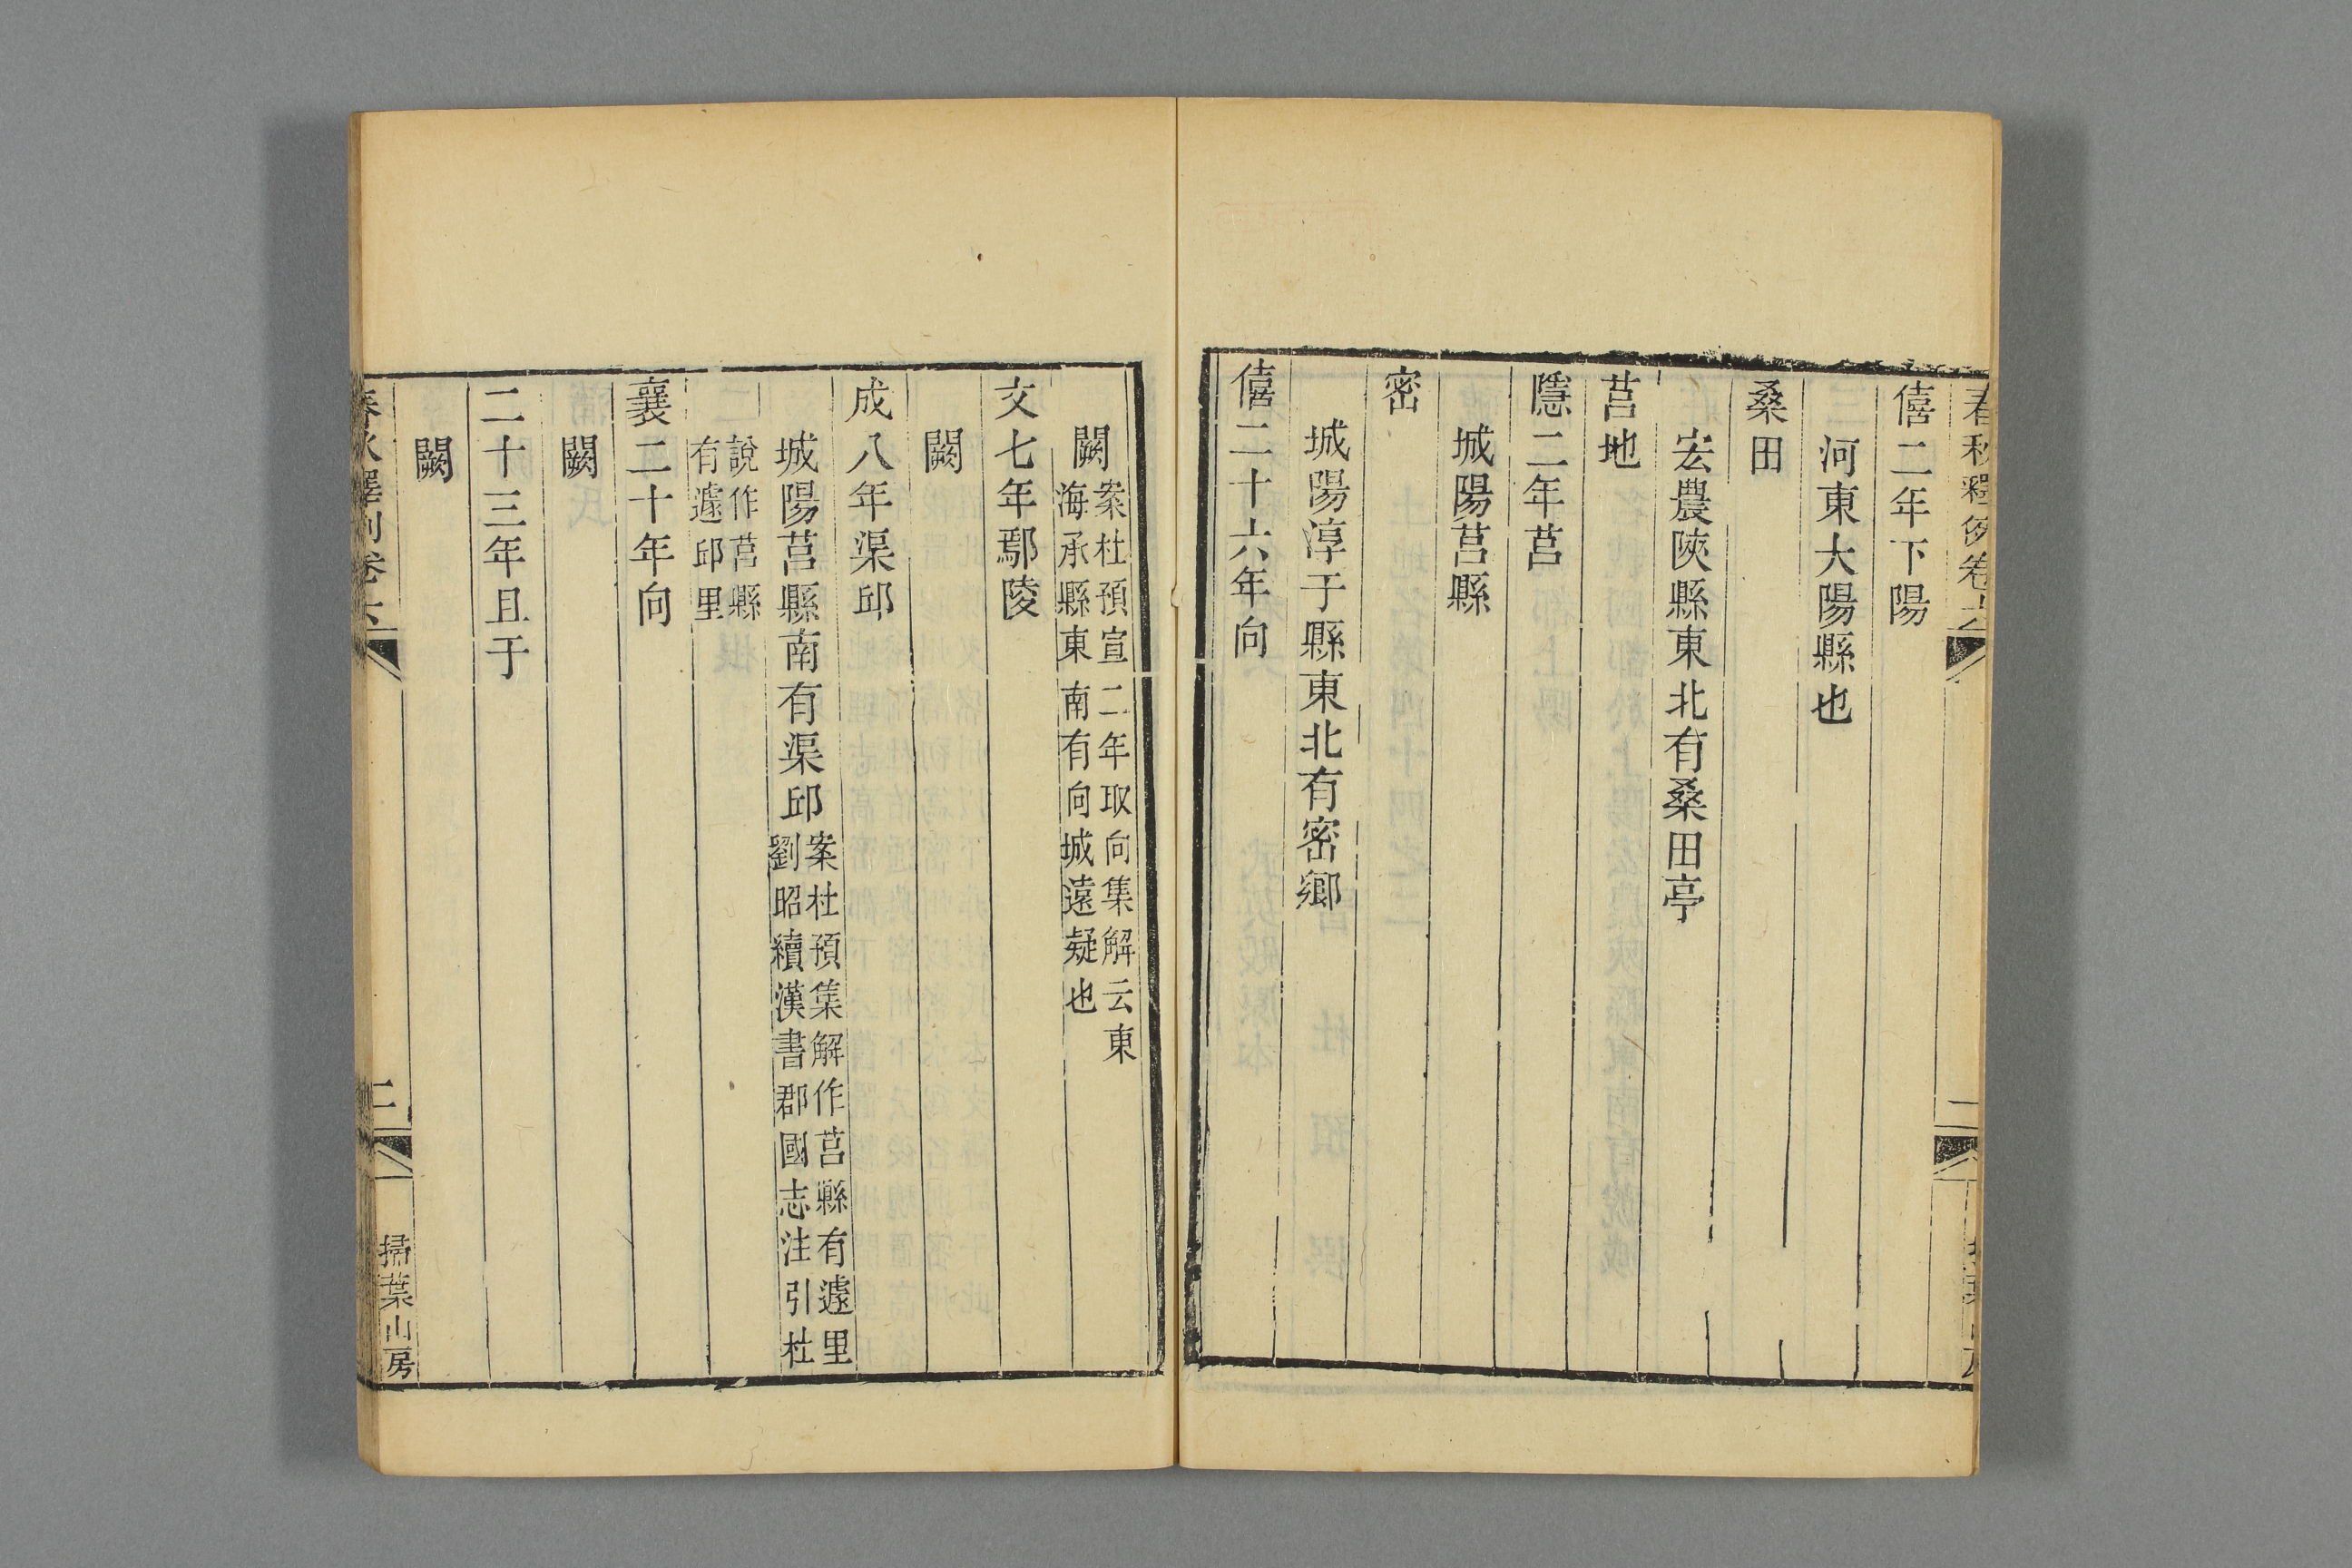 春秋釋例卷六
僖二年下陽
河東大陽縣也
桑田
宏農陝縣東北有桑田亭
莒地
隱二年莒
城陽莒縣
密
城陽淳于縣東北有密鄉
僖二十六年向
闕案杜預宣二年取向集解云東
海承縣東南有向城遠疑也
文七年鄢陵
闕
成八年渠邱
城陽莒縣南有渠邱案杜預集解作莒縣有蘧里
劉昭續漢書郡國志注引杜
說作莒縣
有蘧邱里
襄二十年向
闕
二十三年且于
闕
春秋釋例卷六
二
掃葉山房